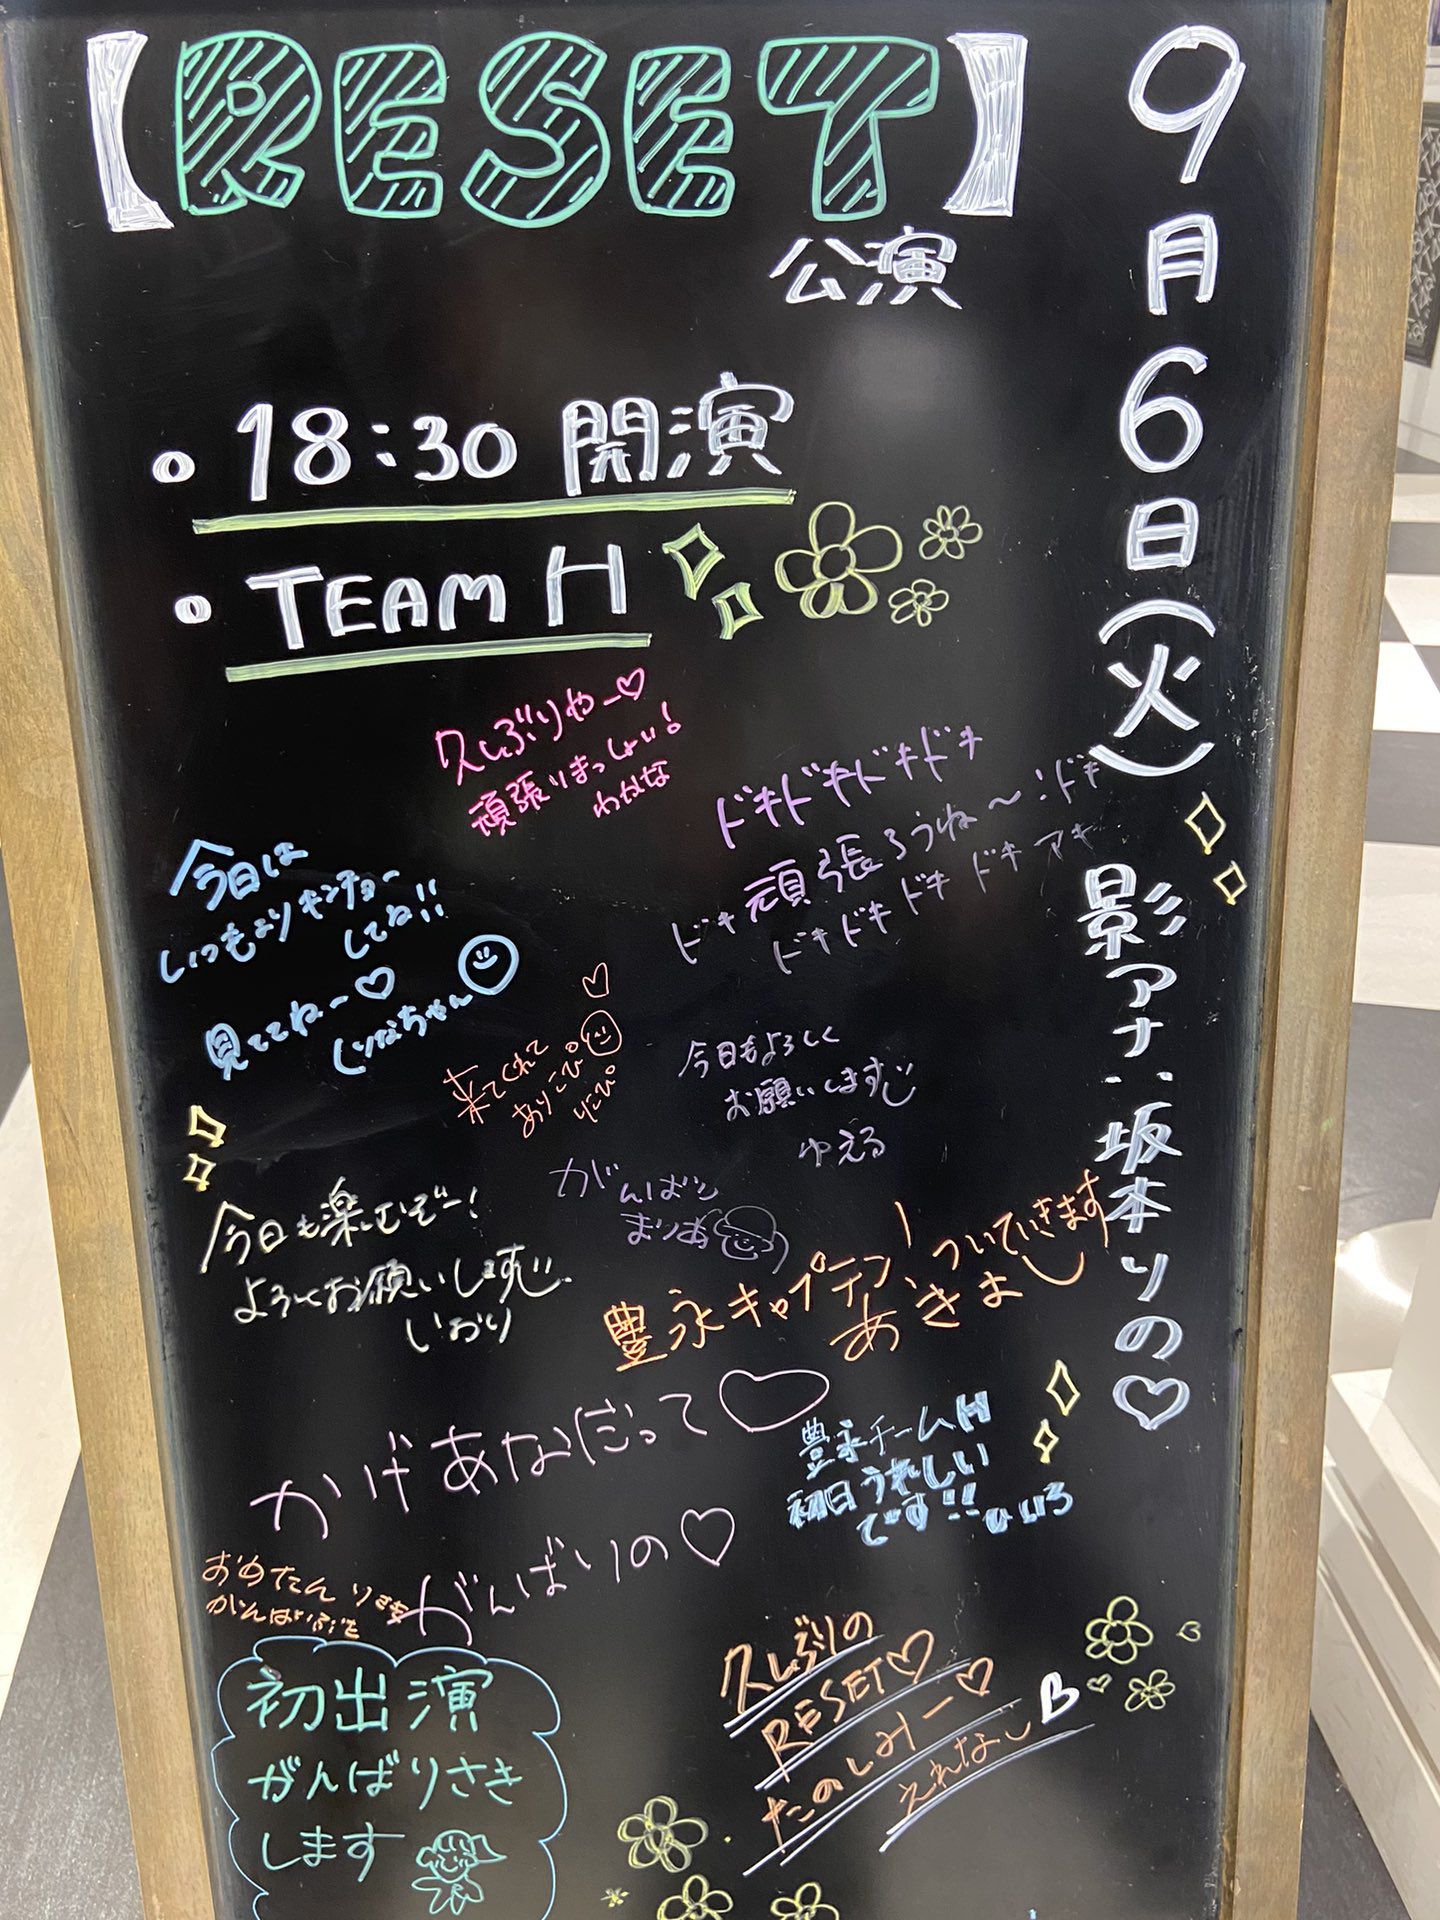 【RESET】
公演
9月6日(火)
影アナ:坂本りの♡
・18:30 開演
・TEAM H
久しぶりやー♡
頑張りまっしょい!
わかな
ドキドキドキドキ
ドキ頑張ろうね〜!ドキ
ドキドキドキドキアキ
今日は
いつもよりキンチョー
してね!!
見ててねー♡
りなちゃん
来てくれて
ありこぴ♡
りこぴ
今日もよろしく
お願いします
ゆえる
がんばい
まりあ
今日も楽しむぞー!
よろしくお願いします
いおり
豊永キャプテン!
ついていきます
あきよし
かげあなだって♡
がんばりの♡
豊永チームH
初日うれしい
です!!ひいろ
おめたんりさき
初出演
がんばりさき
します
久しぶりの
RESET♡
たのしみー♡
えれなし